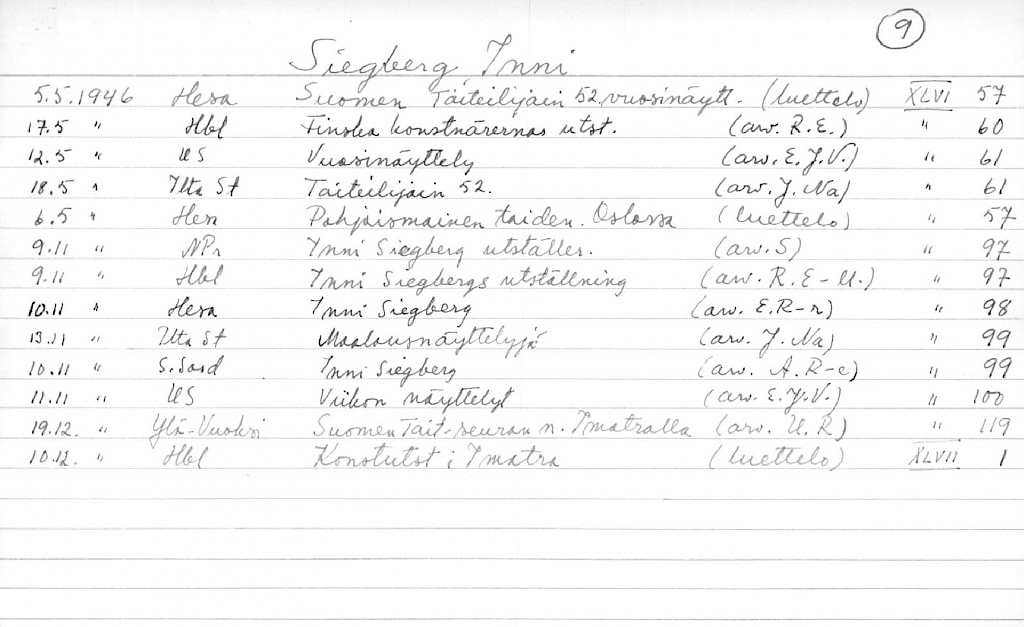 9
Siegberg, Inni
5.5.1946 Hesa Suomen Taiteilijain 52. vuosinäytt. (luettelo) XLVI 57
17.5 " Hbl Finska konstnärernas utst. (arv. R.E.) " 60
12.5 " US Vuosinäyttely (arv. E.J.V.) " 61
18.5 " Ilta St Taiteilijain 52. (arv. J. Na) " 61
6.5 " Hesa Pohjoismainen taiden. Oslossa (luettelo) " 57
9.11 " NPr Inni Siegberg utställer. (arv. S) " 97
9.11 " Hbl Inni Siegbergs utställning (arv. R.E-U.) " 97
10.11 " Hesa Inni Siegberg (arv. E.R-r) " 98
13.11 " Ilta St Maalausnäyttelyjä (arv. J. Na) " 99
10.11 " S.Sosd Inni Siegberg (arv. A.R-c) " 99
11.11 " US Viikon näyttelyt (arv. E.J.V.) " 100
19.12. " Ylä-Vuoksi Suomen Tait-seuran n. Imatralla (arv. U.R) " 119
10.12. " Hbl Konstutst i Imatra (luettelo) XLVII 1